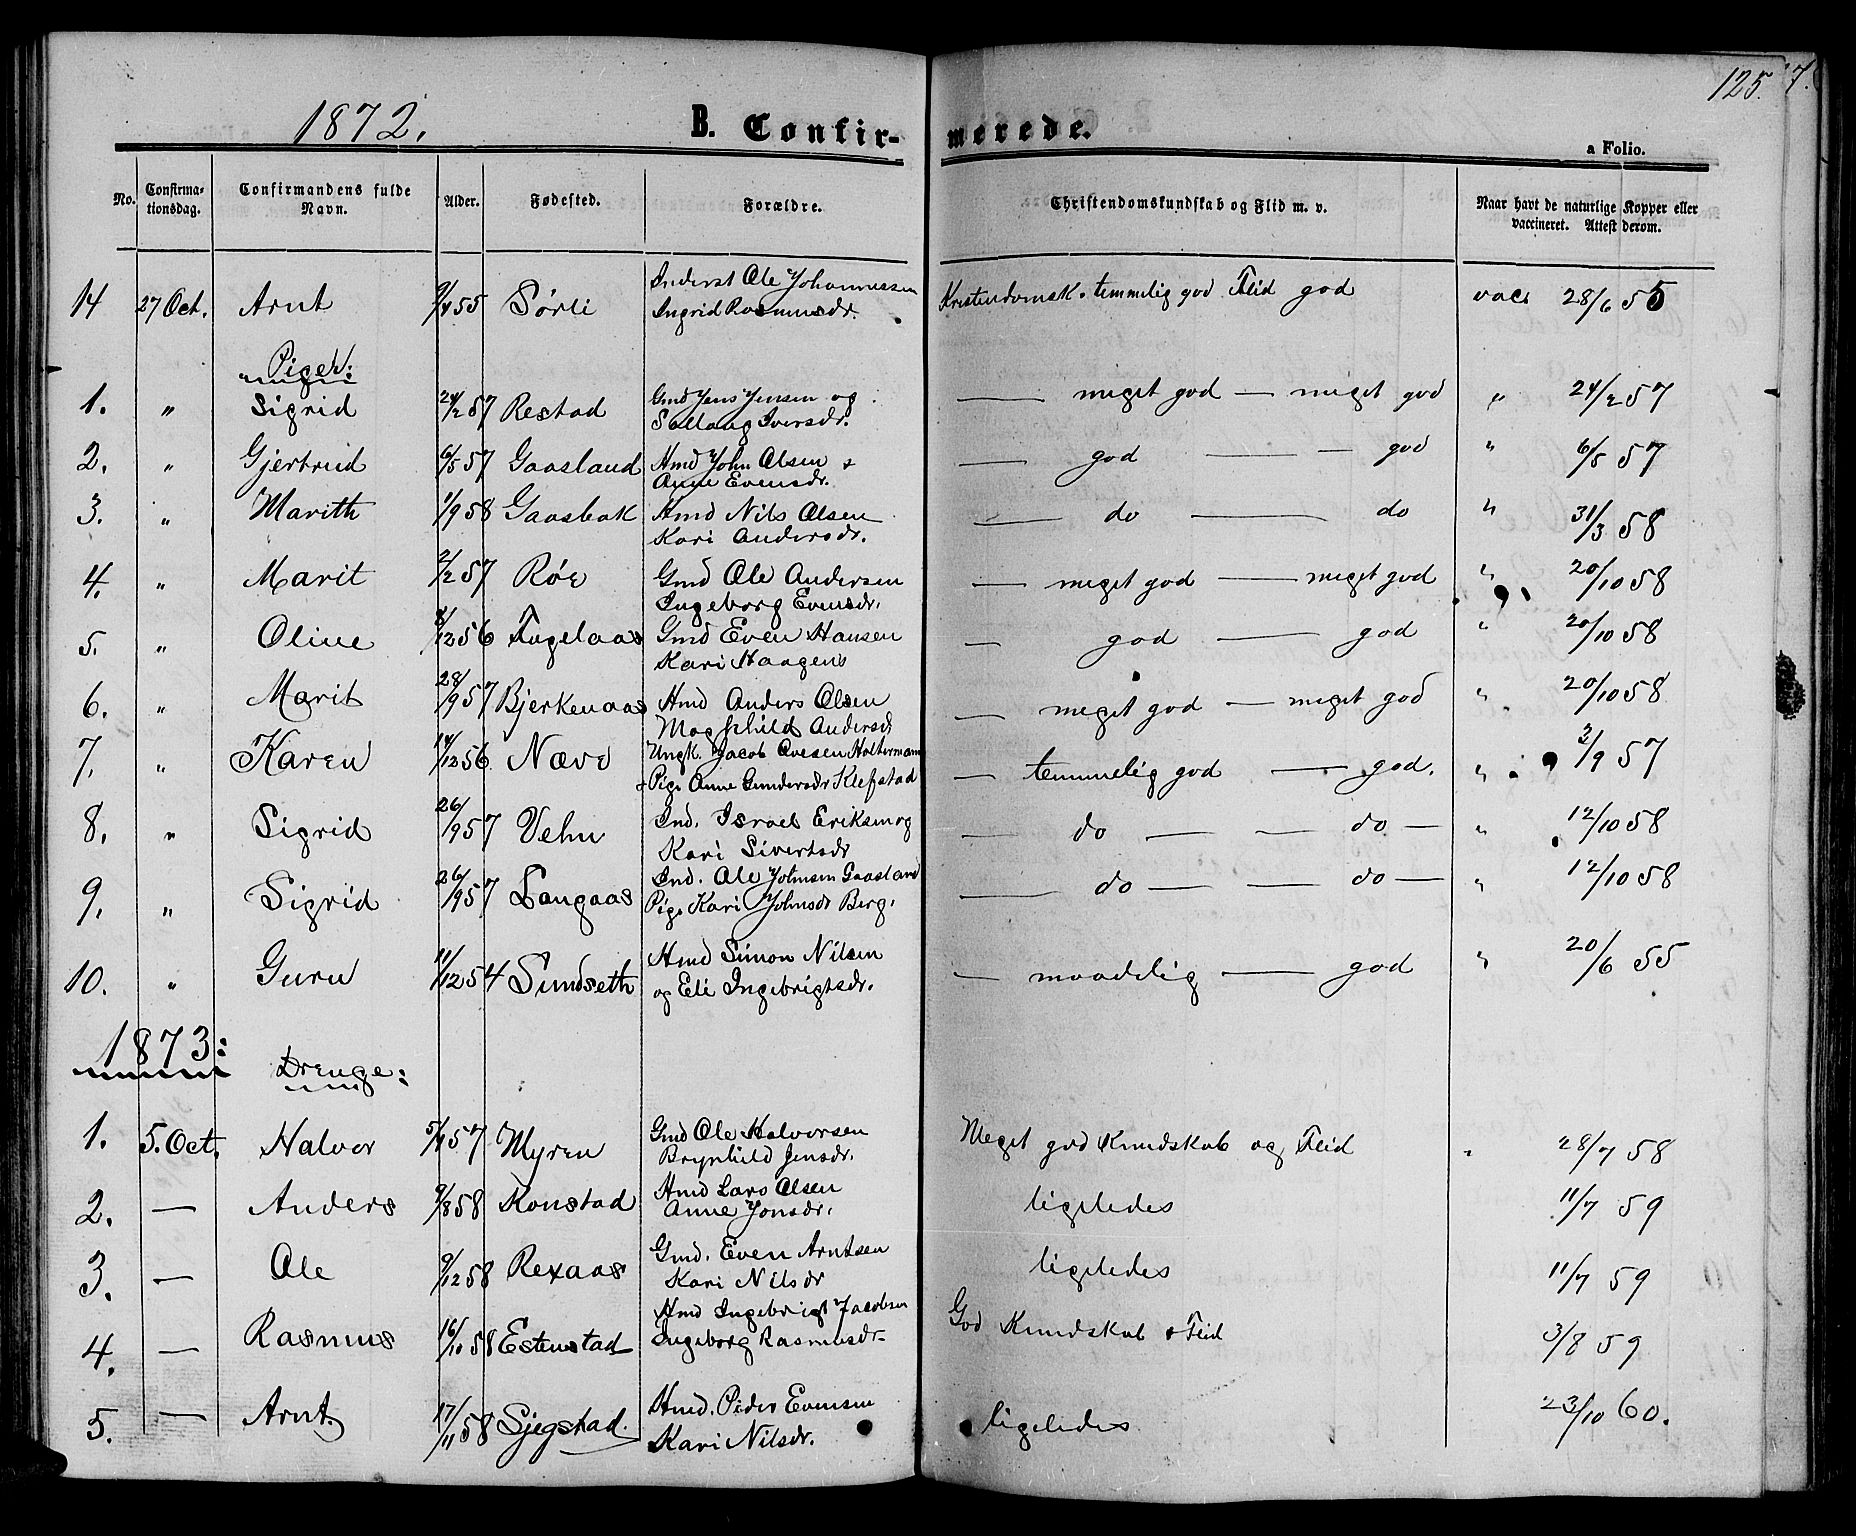 125. 7.
1872. B. Confirmerede.
a Folio.
No. Confirmationsdag. Confirmandens fulde Navn. Alder. Fødested. Forældre. Christendomskundskab og Flid m. v. Naar havt de naturlige Kopper eller vaccineret. Attest derom.
14 27 Oct. Arnt 9/4 55 Sørli Inderst Ole Johannessen Kristendomsk. temmelig god Flid god vac. 28/6 55
Ingrid Rasmusdr.
Piger:
1. " Sigrid 24/2 57 Restad Gmd Jens Jensen og — meget god — meget god " 24/2 57
Solaug Iversdr.
2. " Gjertrud 6/5 57 Gaasland Hmd John Olsen + — god — — god " 6/5 57
Anne Evensdr.
3. " Marith 1/9 58 Gaasbak Hmd Nils Olsen — do — do " 31/3 58
Kari Andersdr.
4. " Marit 2/2 57 Røe Gmd Ole Andersen — meget god — meget god " 20/10 58
Ingeborg Evensdr.
5. " Oline 8/12 56 Fugelaas Gmd Even Hansen — god — god " 20/10 58
Kari Haagens
6. " Marit 28/9 57 Bjerkenaas Hmd Anders Olsen — meget god — meget god " 20/10 58
Magnhild Andersd.
7. " Karen 14/12 56 Næve Ungk. Jacob Ovesen Holtermann — temmelig god — god. " 3/9 57
+ Pige Anne Gundersdr Klefstad
8. " Sigrid 26/9 57 Vehn Ind. Israel Eriksen og — do — — do — " 12/10 58
Kari Sivertsdr
9. " Sigrid 26/9 57 Langaas Ind. Ole Johnsen Gaasland — do — — do — " 12/10 58
Pige Kari Johnsdr Berg.
10. " Guru 11/12 54 Sundseth Hmd Simon Nilsen — maadelig — god " 20/6 55
og Eli Ingebrigtsdr.
1873:
Drenge:
1. 5. Oct. Halvor 5/7 57 Myren Gmd Ole Halvorsen Meget god Kundskab og Flid " 28/7 58
Brynhild Jensdr.
2. — Anders 9/8 58 Konstad Hmd Lars Olsen ligeledes 11/7 59
Anne Jonsdr.
3. — Ole 9/12 58 Rexaas Gmd. Even Arntsen ligeledes 11/7 59
Kari Nilsdr
4. — Rasmus 16/10 58 Estenstad Hmd Ingebrigt Jacobsen God Kundskab + Flid 3/8 59
Ingeborg Rasmusdr
5. — Arnt 17/11 58 Sjegstad. Hmd. Peder Evensen ligeledes 23/10 60.
Kari Nilsdr.